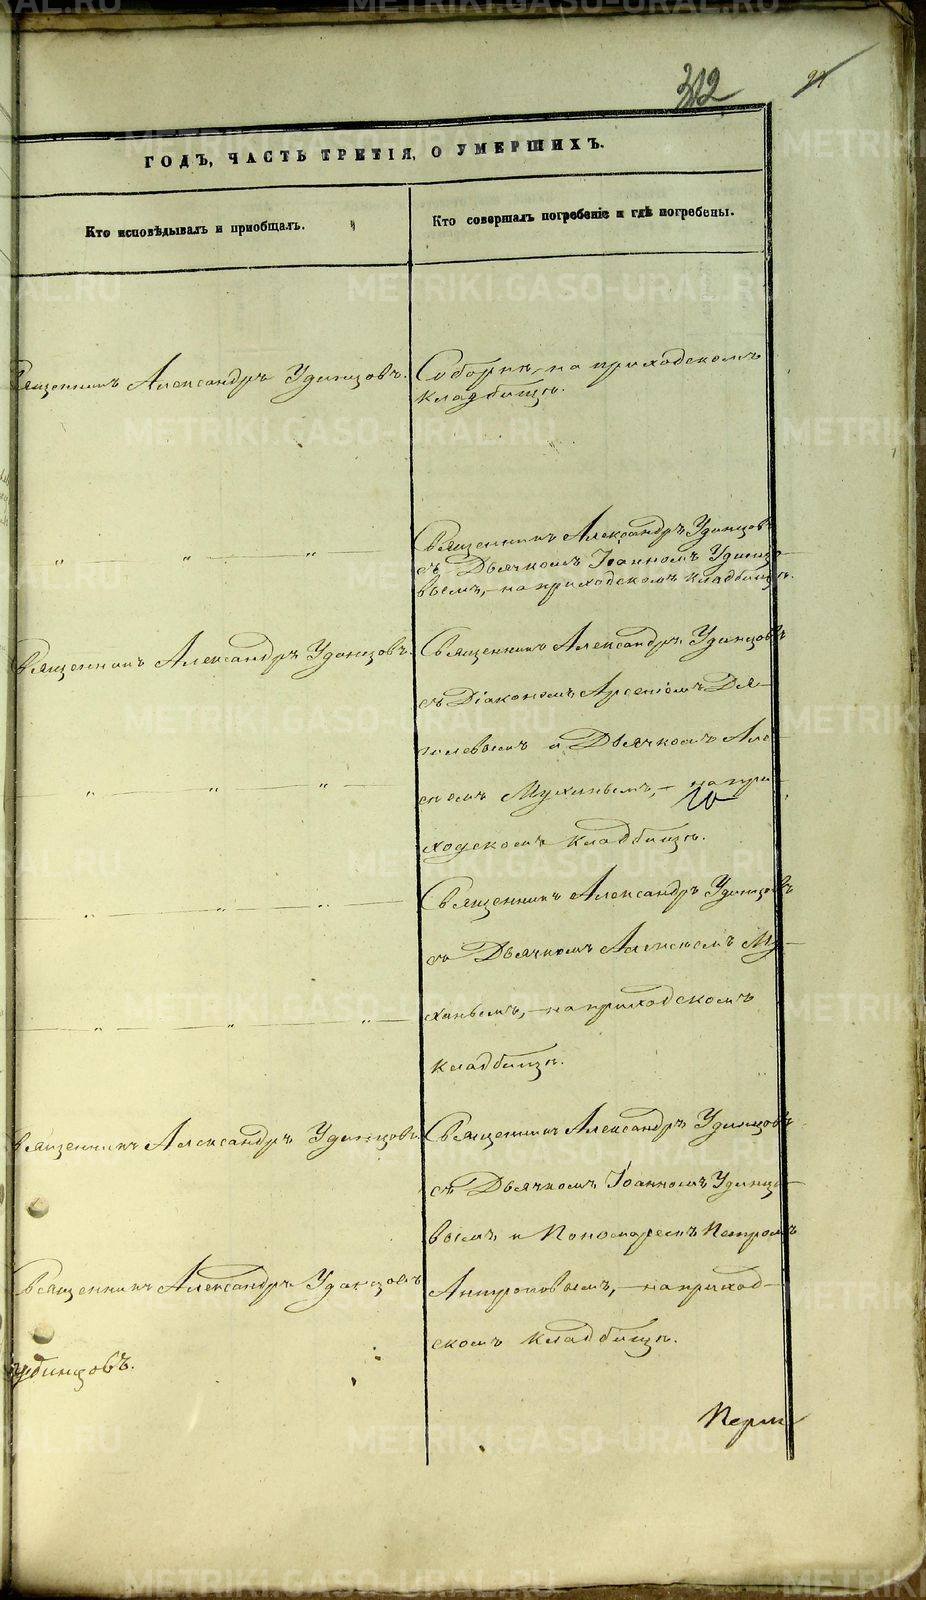 312
ГОДЪ, ЧАСТЬ ТРЕТІЯ, О УМЕРШИХЪ.
Кто исповѣдывалъ и пріобщалъ.
Кто совершалъ погребеніе и гдѣ погребены.
Священникъ Александръ Удинцовъ.
Соборнѣ, на приходскомъ
кладбищѣ.
" " "
Священникъ Александръ Удинцовъ
съ Дьячкомъ Іоанномъ Удинцо-
вымъ, на приходскомъ кладбищѣ.
Священникъ Александръ Удинцовъ.
Священникъ Александръ Удинцовъ
съ Діакономъ Арсеніемъ Дя-
гилевымъ и Дьячкомъ Але-
ксѣемъ Мухинымъ, – на при-
ходскомъ кладбищѣ.
" " "
Священникъ Александръ Удинцовъ
съ Дьячкомъ Алексѣемъ Му-
хинымъ, – на приходскомъ
кладбищѣ.
" " "
" " "
Священникъ Александръ Удинцовъ.
Священникъ Александръ Удинцовъ
съ Дьячкомъ Іоанномъ Удинцо-
вымъ и Пономаремъ Петромъ
Антроповымъ, – на приход-
скомъ кладбищѣ.
Священникъ Александръ Удинцовъ
METRIKI.GASO-URAL.RU